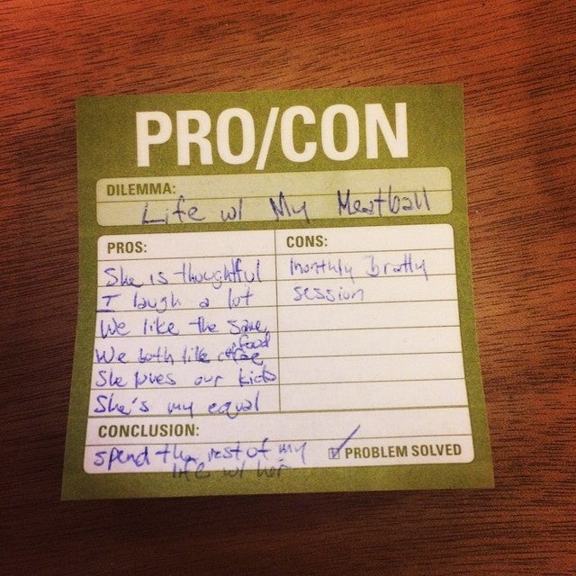 PRO/CON
DILEMMA:
Life w/ My Meatball
PROS:
She is thoughtful
I laugh a lot
We like the same food
We both like coffee
She loves our kids
She's my equal
CONS:
Monthly Bratty
session
CONCLUSION:
spend the rest of my
life w/ her
PROBLEM SOLVED